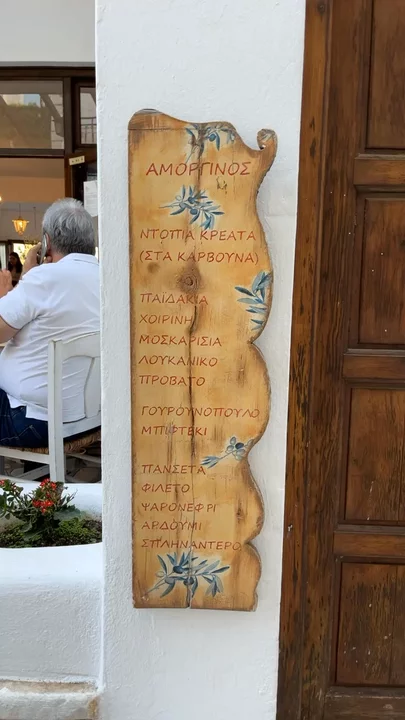 ΑΜΟΡΓΙΝΟΣ
ΝΤΟΠΙΑ ΚΡΕΑΤΑ
(ΣΤΑ ΚΑΡΒΟΥΝΑ)
ΠΑΪΔΑΚΙΑ
ΧΟΙΡΙΝΗ
ΜΟΣΚΑΡΙΣΙΑ
ΛΟΥΚΑΝΙΚΟ
ΠΡΟΒΑΤΟ
ΓΟΥΡΟΥΝΟΠΟΥΛΟ
ΜΠΙΦΤΕΚΙ
ΠΑΝΣΕΤΑ
ΦΙΛΕΤΟ
ΨΑΡΟΝΕΦΡΙ
ΑΡΔΟΥΜΙ
ΣΠΛΗΝΑΝΤΕΡΟ